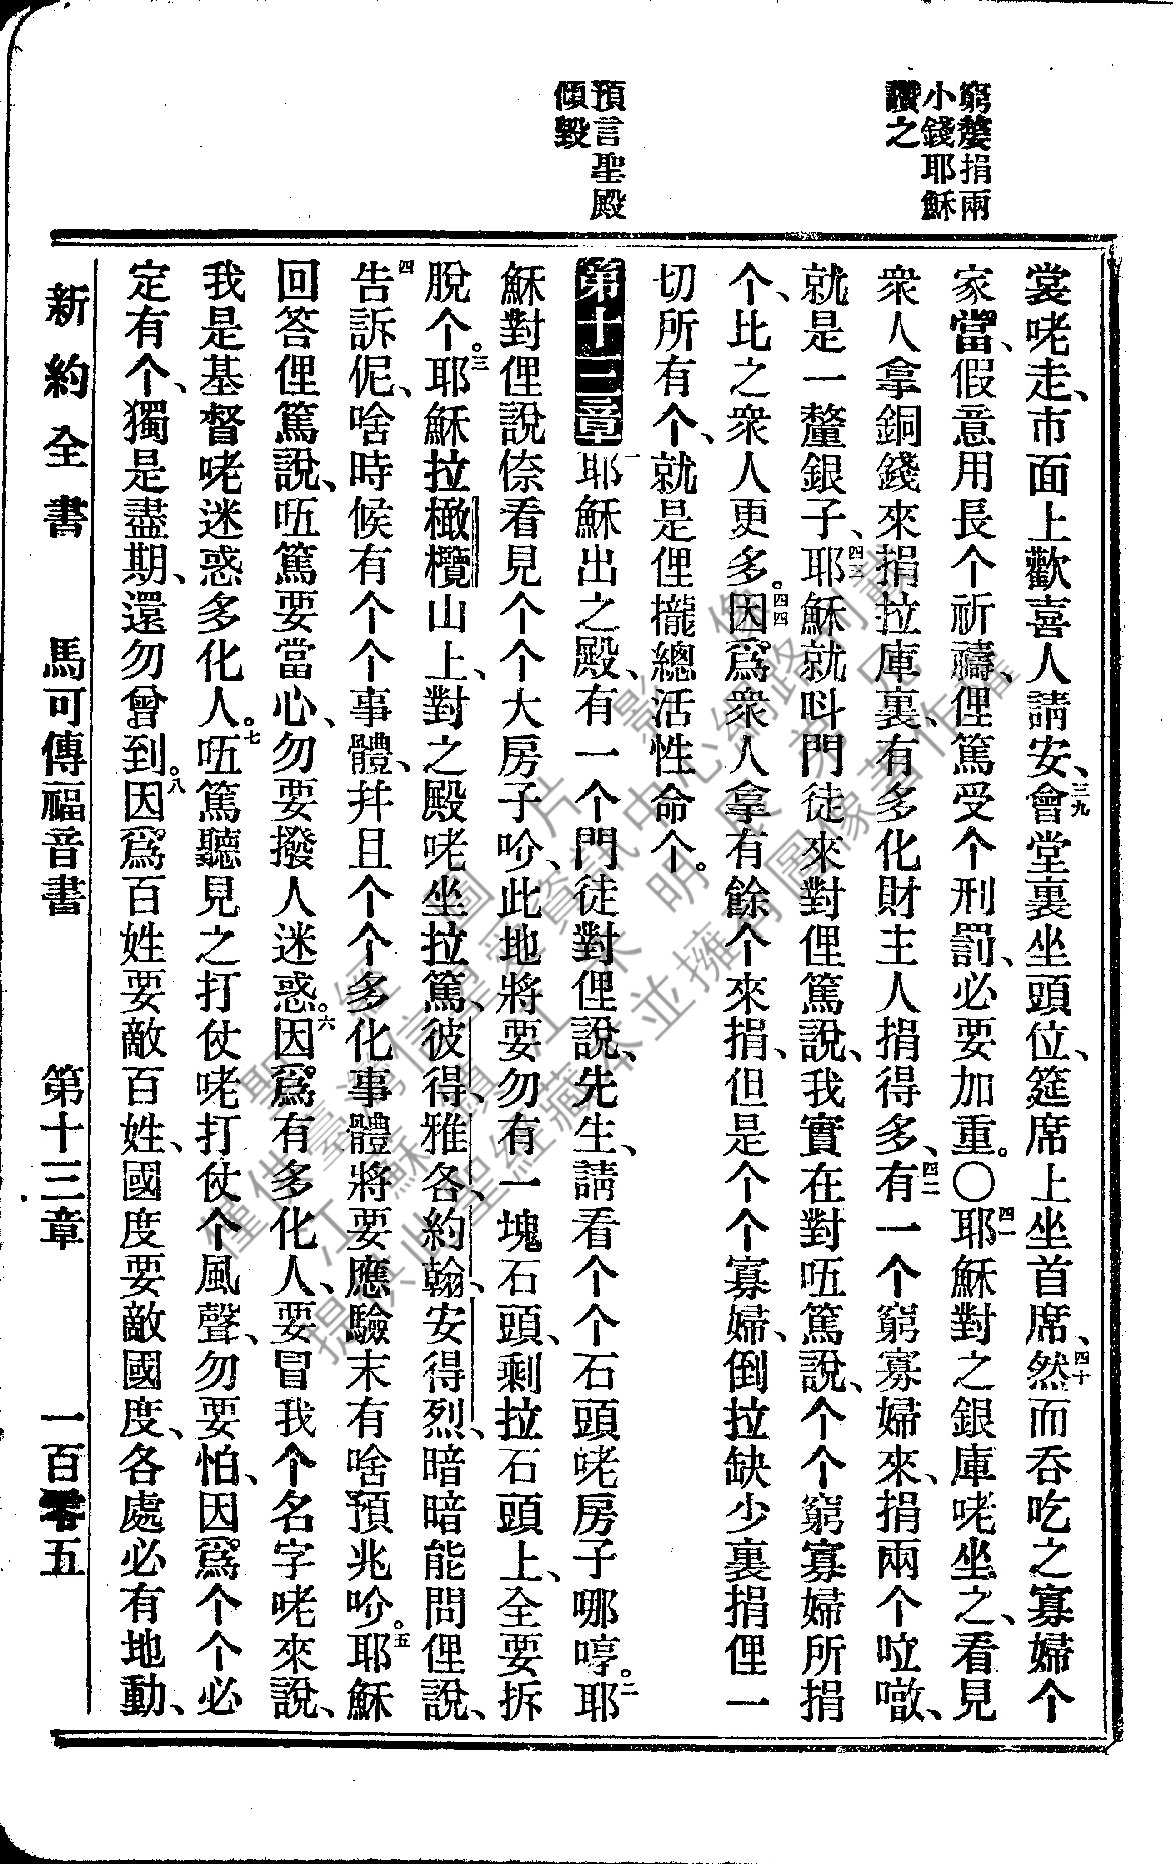 窮嫠捐兩
小錢耶穌
讚之
預言聖殿
傾毀
裳咾走、市面上歡喜人請安、三九會堂裏坐頭位、筵席上坐首席、四十然而吞吃之寡婦个
家當、假意用長个祈禱、俚篤受个刑罰、必要加重。〇四一耶穌對之銀庫咾坐之、看見
衆人拿銅錢來捐拉庫裏、有多化財主人捐得多、四二有一个窮寡婦來、捐兩个啶噋、
就是一釐銀子、四三耶穌就呌門徒來對俚篤說、我實在對㕶篤說、个个窮寡婦所捐
个、比之衆人更多。四四因爲衆人拿有餘个來捐、但是个个寡婦、倒拉缺少裏捐俚一
切所有个、就是俚攏總活性命个。
第十三章 一耶穌出之殿、有一个門徒對俚說、先生、請看个个石頭咾房子哪哼。二耶
穌對俚說、倷看見个个大房子吤、此地將要勿有一塊石頭、剩拉石頭上、全要拆
脫个。三耶穌拉橄欖山上、對之殿咾坐拉篤、彼得、雅各、約翰、安得烈、暗暗能問俚說、
四告訴伲、啥時候有个个事體、幷且个个多化事體將要應驗末有啥預兆吤。五耶穌
回答俚篤說、㕶篤要當心、勿要撥人迷惑。六因爲有多化人、要冒我个名字咾來說、
我是基督咾迷惑多化人。七㕶篤聽見之打仗咾打仗个風聲、勿要怕、因爲个个必
定有个、獨是盡期、還勿曾到。八因爲百姓要敵百姓、國度要敵國度、各處必有地動、
新約全書 馬可傳福音書 第十三章 一百零五
僅供臺灣信望愛資訊中心網路刊載
江蘇鎮江 朱明展弟兄
提供此聖經藏本並擁有圖像著作權